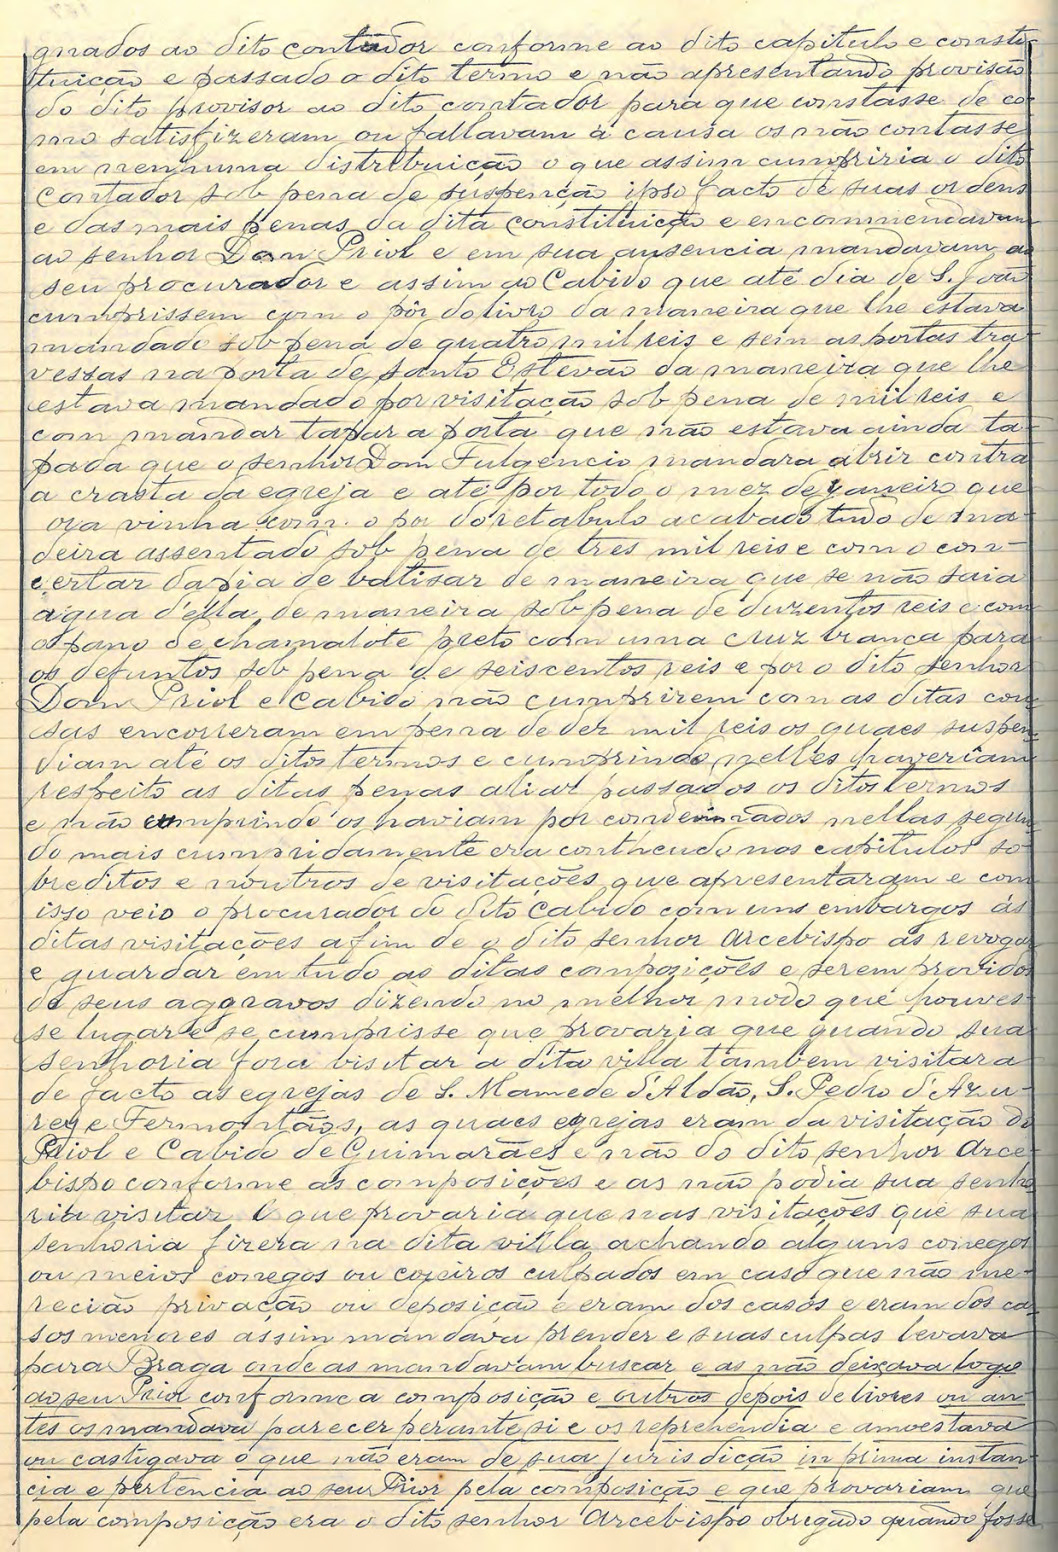 gnados ao dito contador conforme ao dito capitulo e consti-
tuição e passado o dito termo e não apresentando provisão
do dito provisor ao dito contador para que constasse de co-
mo satisfizeram ou fallavam á causa os não contasse
em nenhuma distribuição o que assim cumpriria o dito
Contador sob pena de suspenção ipso facto de suas ordens
e das mais penas da dita constituição e encommendavam
ao senhor Dom Priol e em sua ausencia mandavam ao
seu procurador e assim ao Cabido que até dia de S. João
cumprissem com o pôr do livro da maneira que lhe estava
mandado sob pena de quatro mil reis e sem as portas tra-
vessas na porta de Santo Estevão da maneira que lhe
estava mandado por visitação sob pena de mil reis e
com mandar tapar a porta que não estava ainda ta-
pada que o senhor Dom Fulgencio mandara abrir contra
a crasta da egreja e até por todo o mez de Janeiro que
ora vinha com o por do retabulo acabado tudo de ma-
deira assentado sob pena de tres mil reis e com o con-
certar da pia de batisar de maneira que se não saia
agua d'ella de maneira sob pena de duzentos reis e com
o pano de chamalote preto com uma cruz branca para
os defuntos sob pena de seiscentos reis e por o dito senhor
Dom Priol e Cabido não cumprirem com as ditas cou-
sas encorreram em pena de dez mil reis os quaes suspen-
diam até os ditos termos e cumprindo nelles haveriam
respeito as ditas penas aliás passados os ditos termos
e não cumprindo os haviam por condemnados nellas segun-
do mais cumpridamente era contheudo nos capitulos so-
breditos e noutros de visitações que apresentaram e com
isso veio o procurador do dito Cabido com uns embargos ás
ditas visitações afim de o dito senhor Arcebispo as revogar
e guardar em tudo as ditas composições e serem providos
de seus aggravos dizendo no melhor modo que houves-
se lugar e se cumprisse que provaria que quando sua
senhoria fora visitar a dita villa tambem visitara
de facto as egrejas de S. Mamede d'Aldão, S. Pedro d'Azu-
rey e Fermontãos, as quaes egrejas eram da visitação do
Priol e Cabido de Guimarães e não do dito senhor Arce-
bispo conforme as composições e as não podia sua senho-
ria visitar E que provaria que nas visitações que sua
senhoria fizera na dita villa achando alguns conegos
ou meios conegos ou coreiros culpados em caso que não me-
recião privação ou deposição e eram dos casos e eram dos ca-
sos menores assim mandava prender e suas culpas levava
para Braga onde as mandavam buscar e as não deixava logo
ao seu Priol conforme a composição e outros depois de livres ou an-
tes os mandava parecer perante si e os reprehendia e amoestava
ou castigava o que não eram de sua jurisdicção in prima instan-
cia e pertencia ao seu Prior pela composição e que provariam que
pela composição era o dito senhor Arcebispo obrigado quando fosse